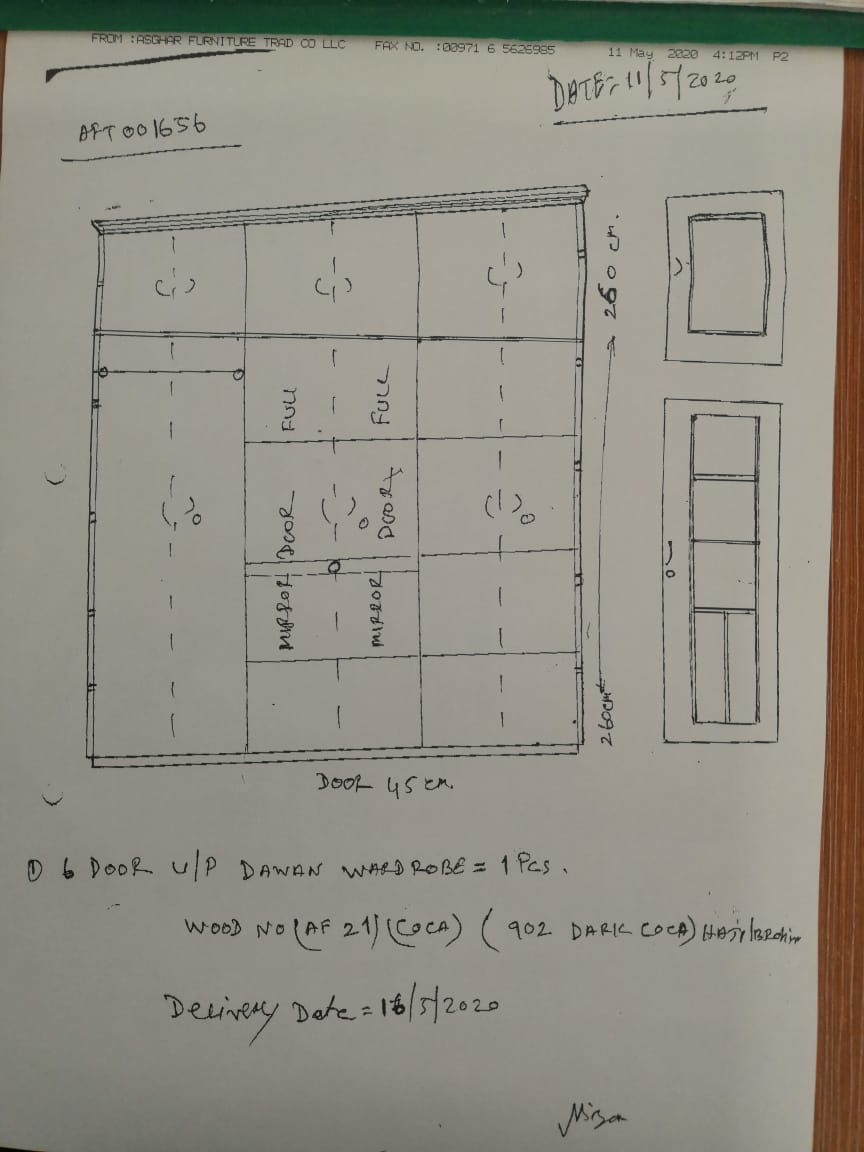 FROM :ASGHAR FURNITURE TRAD CO LLC FAX NO. :00971 6 5626985 11 May 2020 4:12PM P2
DATE= 11/5/2020
AFT001656
260 cm.
FULL FULL
DOOR DOOR
MIRROR MIRROR
260cm
DOOR 45 cm.
① 6 DOOR U/P DAWAN WARDROBE = 1 Pcs.
WOOD NO (AF 21) (COCA) ( 902 DARK COCA)
Delivery Date = 16/5/2020